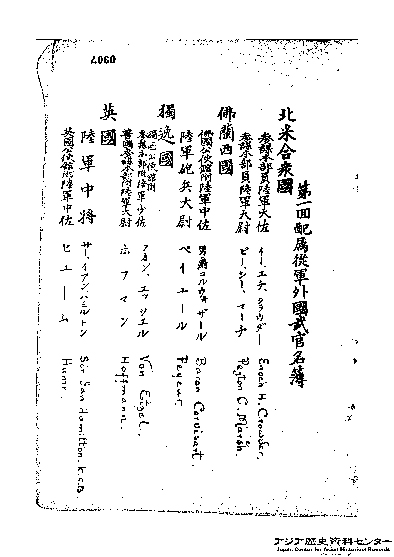 第一回配属從軍外國武官名簿
北米合衆國
参謀本部員陸軍大佐 イー、エチ、クラウダー Enoch H. Crowder.
参謀本部員陸軍大尉 ピー、シー、マーチ Peyton C. March.
佛蘭西國
佛國公使館附陸軍中佐 男爵コルヴィザール Baron Corvisart.
陸軍砲兵大尉 ペイユール Peyeur.
獨逸國
参謀本部附陸軍少佐 フォン、エッツエル Von Etzel.
陸軍大尉 ホフマン Hoffmann.
英國
陸軍中將 サー、イアン、ハミルトン Sir Ian Hamilton. K.C.B
英國公使館附陸軍中佐 ヒューム Hume.
アジア歴史資料センター
Japan Center for Asian Historical Records